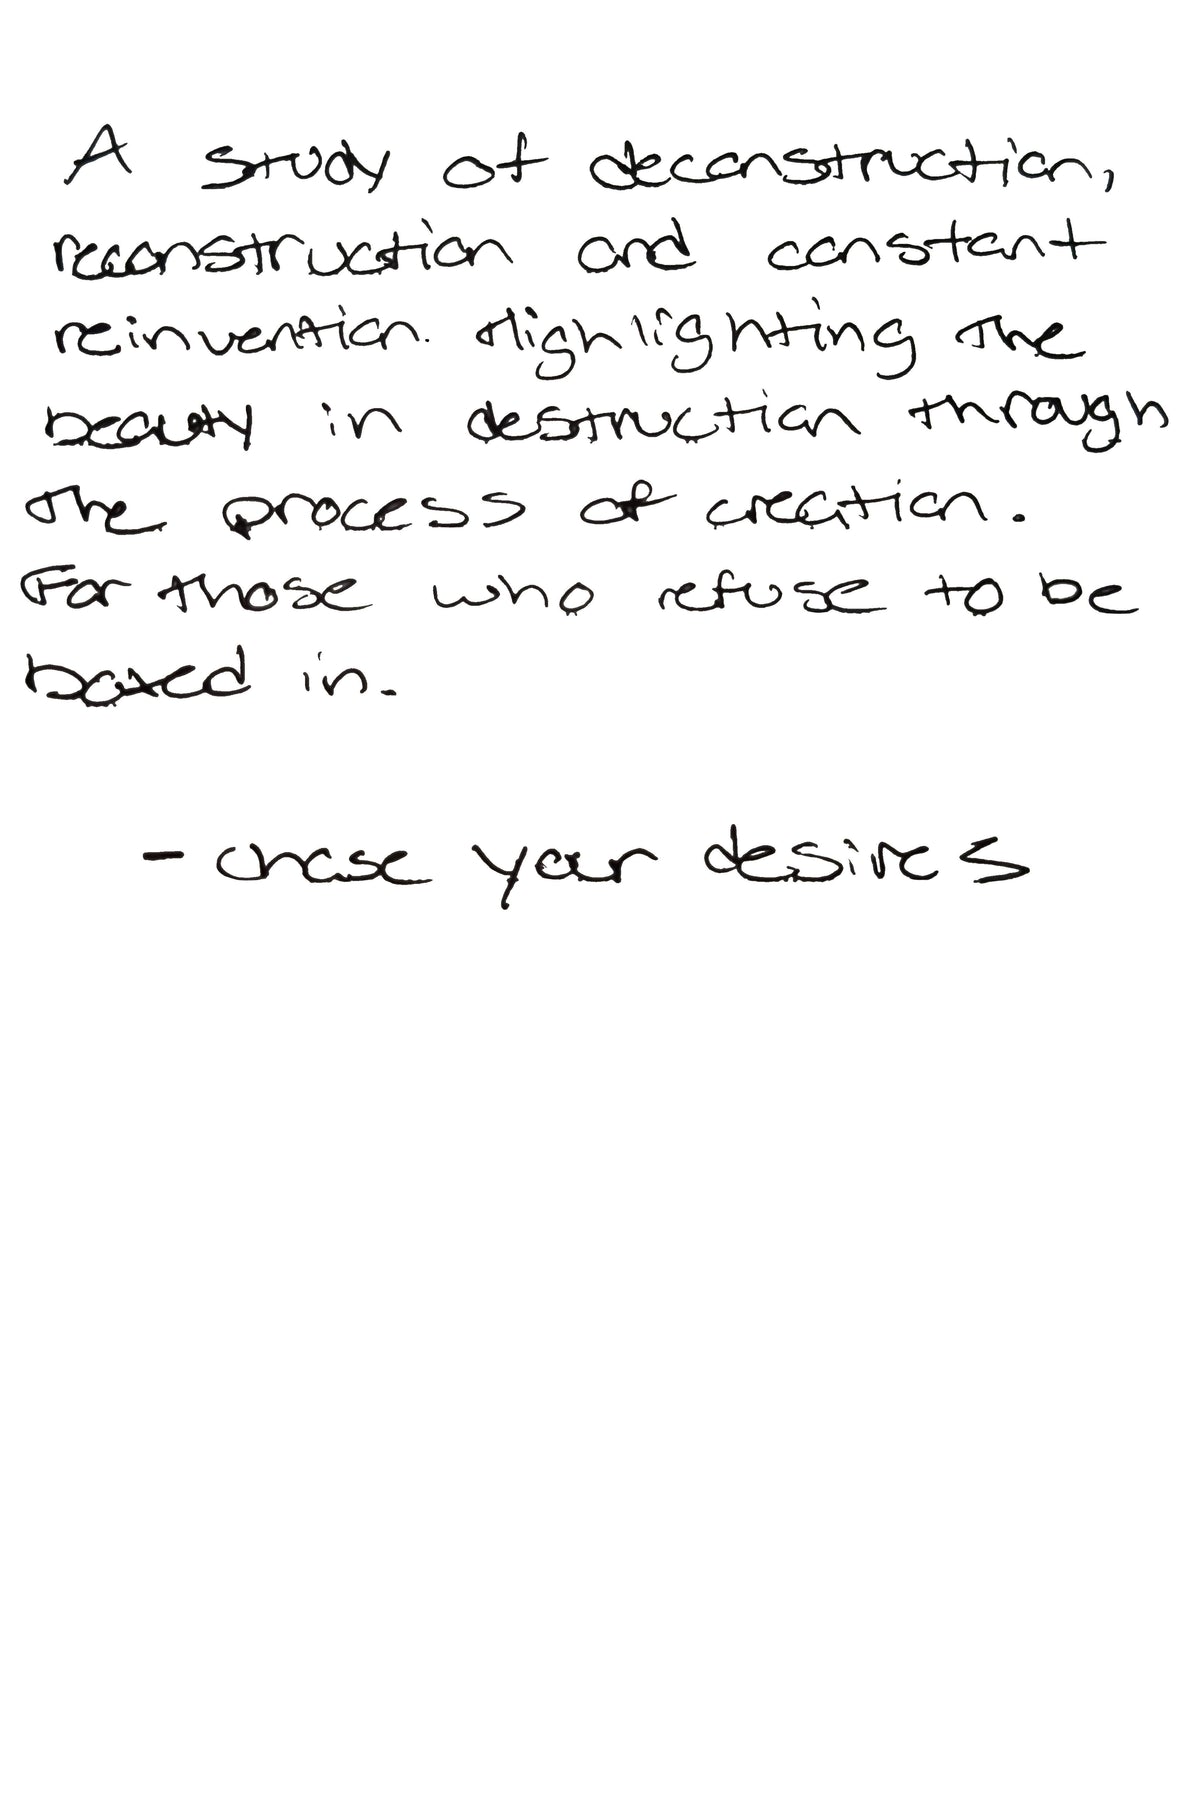 A study of deconstruction,
reconstruction and constant
reinvention. Highlighting the
beauty in destruction through
the process of creation.
For those who refuse to be
boxed in.
- chase your desires